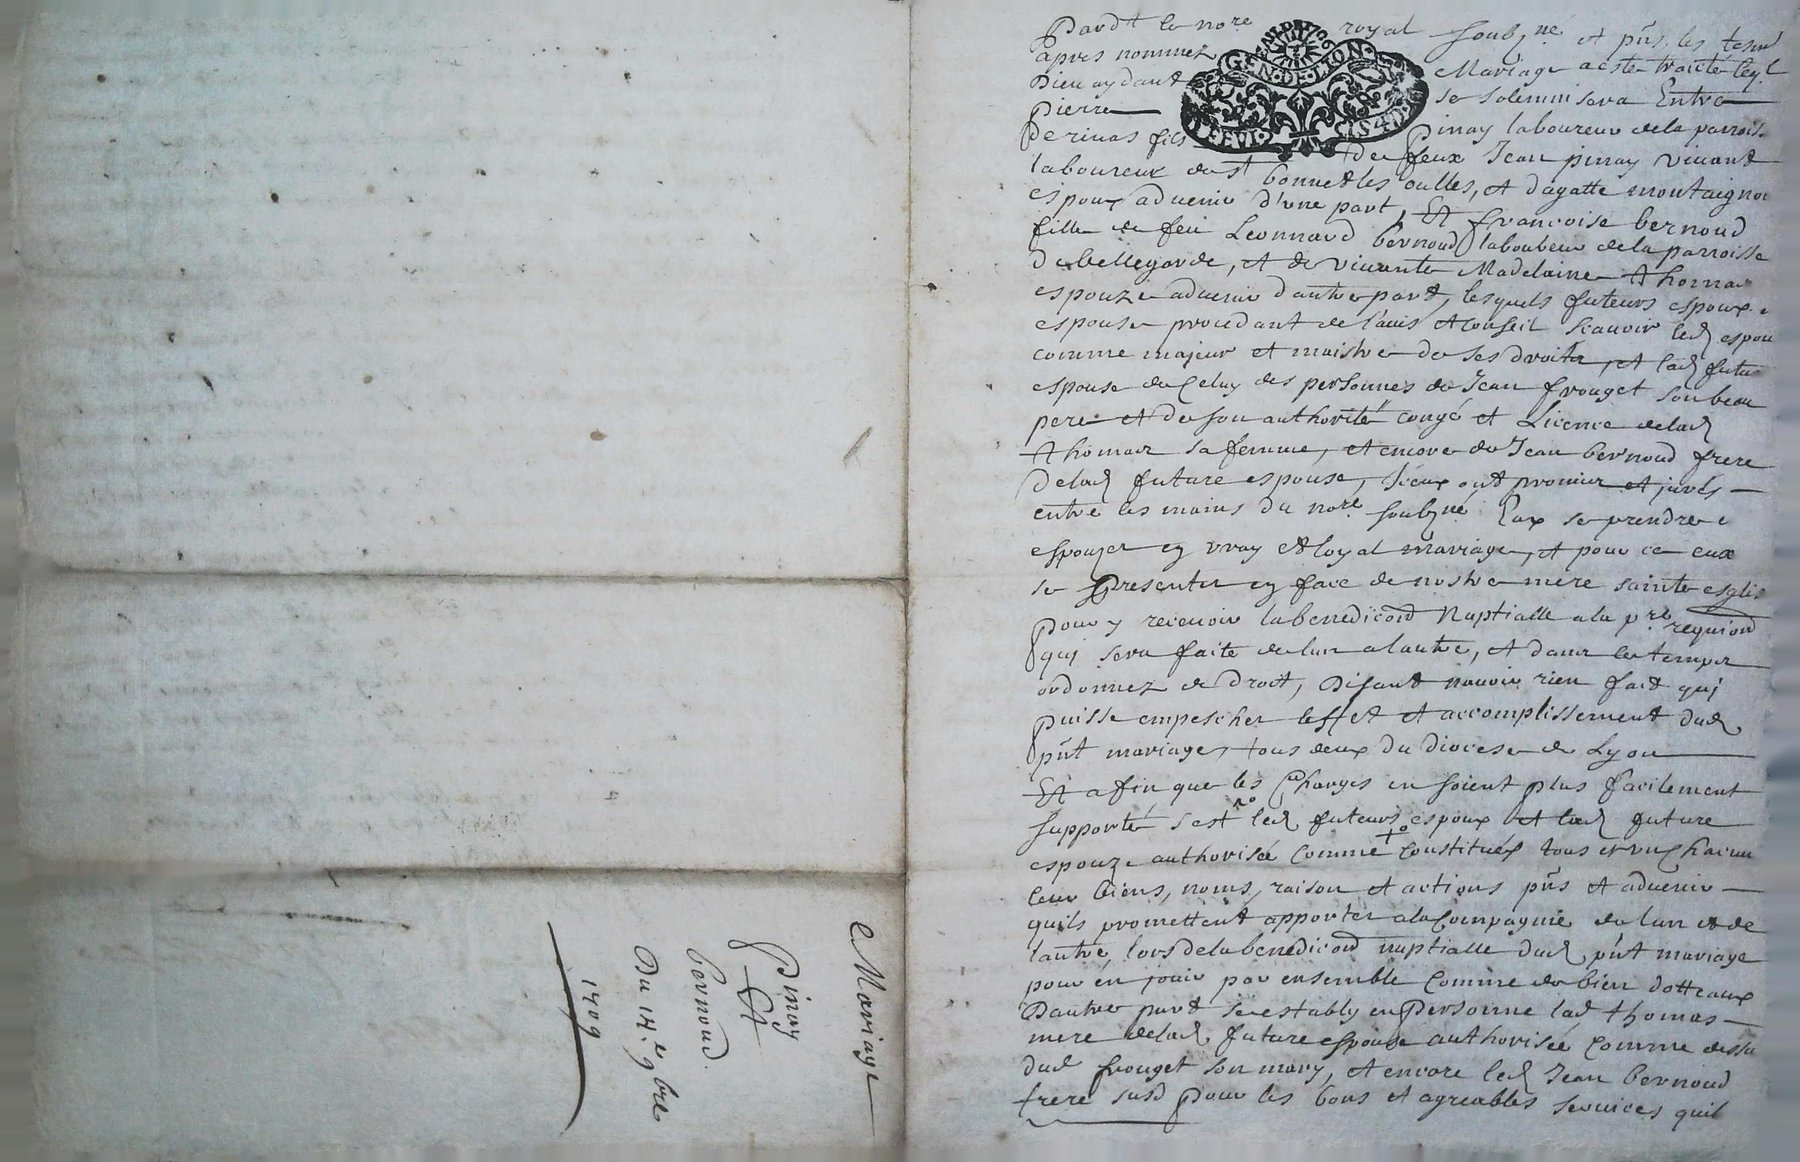 Mariage
Pinay
Et
bernoud
Du 14.e 9bre
1709
Pard.t le no.re royal soubz.né et pñs les tesm.
apres nommez
GEN·DE·LION
Dieu aydant Mariage a este traicté leq.l
Pierre se solemnisera Entre
Pinay laboureur de la parroisse
Perinas fils de feux Jean pinay vivant
laboureur de s.t bonnet les oulles, et dagatte montaignon
espoux advenir d'une part, Et francoise bernoud
fille de feu Leonnard bernoud laboureur de la parroisse
de bellegarde, et de vivante Madelaine Thomas
espouze advenir dautre part, lesquels futeurs espoux e
espouse procedant de lauis et conseil scauoir led espou
comme majeur et maistre de ses droits, et lad futu
espouse de celuy des personnes de Jean frouget son beau
pere et de son authorité congé et Licence delad
Thomas sa femme, et encore de Jean bernoud frere
delad future espouse, Iceux ont promis et jurés
entre les mains du no.re soubz.né Eux se prendre e
espouzer en vray et loyal mariage, et pour ce eux
se Presenter en face de nostre mere sainte eglis
pour y recevoir la benediĉond Nuptialle a la p.re requiond
qui sera faite de lun a lautre, et dans les temps
ordonnez de Droit, Disant n'avoir rien fait qui
puisse empescher leffet et accomplissement dud
pñt mariage, tous deux du diocese de Lyon
Et afin que les Charges en soient plus facilement
supporté s'est led futeurs espoux et lad future
espouze authorisée comme constitués tous et un chacun
leur biens, noms, raison et actions pñs et advenir
quils promettent apporter a la Compagnie de lun et de
lautre, lors de la benediĉond nuptialle dud pñt mariage
pour en jouir par ensemble comme de bien dotteaux
Dautre part sest establ y en Personne lad thomas
mere delad future espouse authorisée comme dessu
dud frouget son mary, et encore led Jean bernoud
frere susd pour les bons et agreables services quil